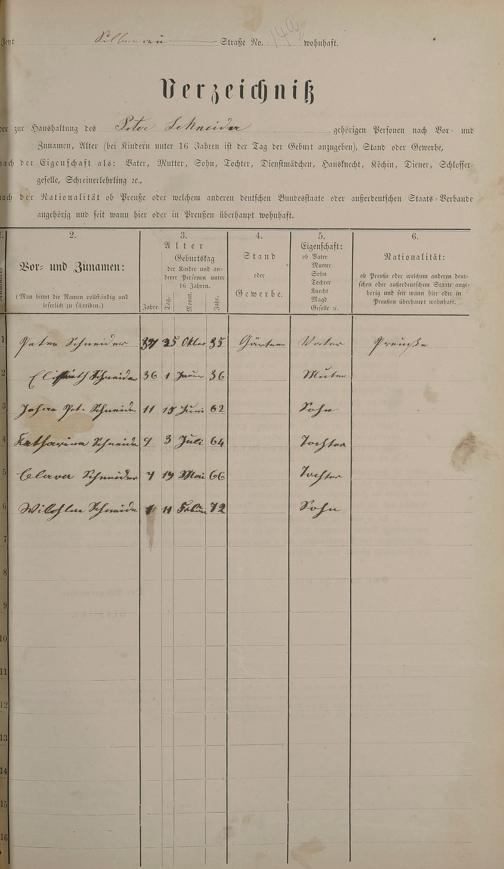 Straße No. 149 wohnhaft.
Verzeichniß
der zur Haushaltung des Peter Schneider gehörigen Personen nach Vor- und
Zunamen, Alter (bei Kindern unter 16 Jahren ist der Tag der Geburt anzugeben), Stand oder Gewerbe,
nach der Eigenschaft als: Vater, Mutter, Sohn, Tochter, Dienstmädchen, Hausknecht, Köchin, Diener, Schlosser-
geselle, Schreinerlehrling ꝛc.,
nach der Nationalität ob Preuße oder welchem anderen deutschen Bundesstaate oder außerdeutschen Staats-Verbande
angehörig und seit wann hier oder in Preußen überhaupt wohnhaft.
2. 3. 4. 5. 6.
Vor- und Zunamen:
(Man bittet die Namen vollständig und
leserlich zu schreiben.)
Alter
Geburtstag
der Kinder und an-
derer Personen unter
16 Jahren.
Jahre Tag. Monat. Jahr.
Stand
oder
Gewerbe.
Eigenschaft:
ob Vater
Mutter
Sohn
Tochter
Knecht
Magd
Geselle ꝛc.
Nationalität:
ob Preuße oder welchem anderen deut-
schen oder außerdeutschen Staate ange-
hörig und seit wann hier oder in
Preußen überhaupt wohnhaft.
1 Peter Schneider 25 Oktbr 35 Gärtner Vater Preuße
2 Elisabeth Schneider 36 1 36 Mutter
3 Schneider 11 15 Juni 62 Sohn
4 Katharina Schneider 3 Juli 64 Tochter
5 Clara Schneider 7 19 Mai 66 Tochter
6 Schneider 1 11 72 Sohn
7
8
9
10
11
12
13
14
15
16